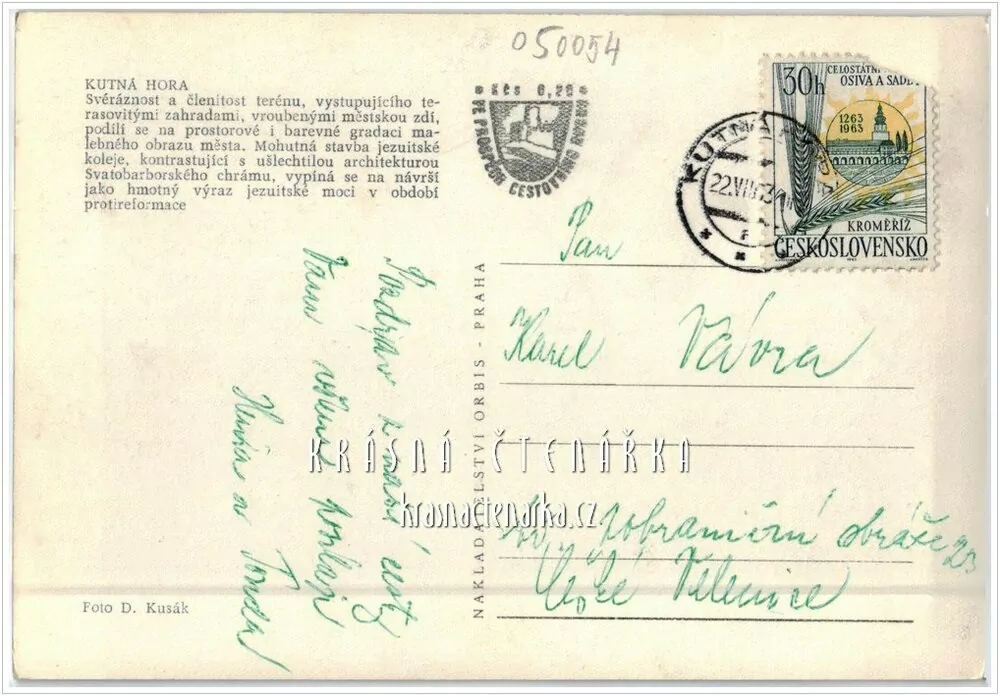 050054
KUTNÁ HORA
Svéráznost a členitost terénu, vystupujícího te-
rasovitými zahradami, vroubenými městskou zdí,
podílí se na prostorové i barevné gradaci ma-
lebného obrazu města. Mohutná stavba jezuitské
koleje, kontrastující s ušlechtilou architekturou
Svatobarborského chrámu, vypíná se na návrší
jako hmotný výraz jezuitské moci v období
protireformace
Kčs 0,20
VE PROSPĚCH CESTOVNÍHO RUCHU
KUTNÁ HORA
22.VIII.63
30h
CELOSTÁTNÍ
OSIVA A SADBY
1263
1963
KROMĚŘÍŽ
ČESKOSLOVENSKO
Pozdrav z naší cesty
Vám všem posílají
a Tonda
NAKLADATELSTVÍ ORBIS - PRAHA
Pan
Karel Vávra
pohraniční stráže
České Velenice
KRÁSNÁ ČTENÁŘKA
krasnactenarka.cz
Foto D. Kusák